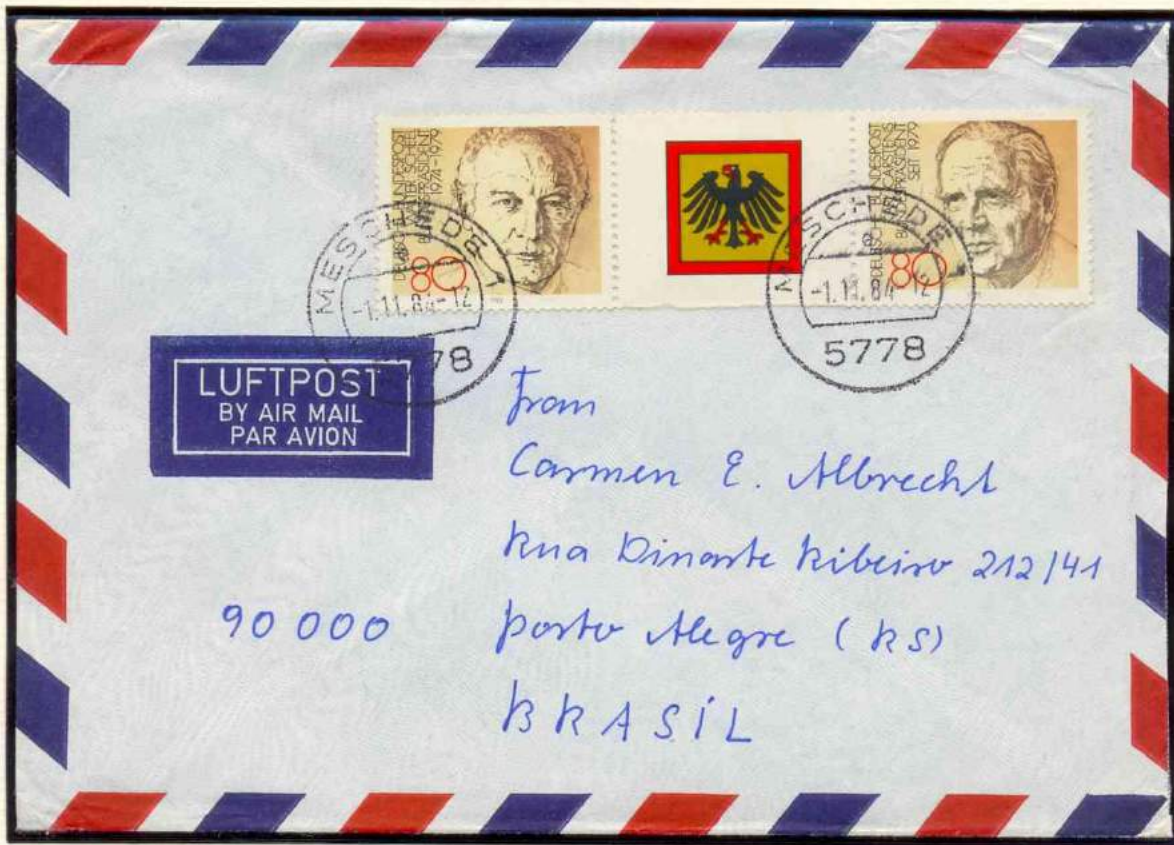 DEUTSCHE BUNDESPOST
WALTER SCHEEL
BUNDESPRÄSIDENT
1974-1979
80
DEUTSCHE BUNDESPOST
KARL CARSTENS
BUNDESPRÄSIDENT
SEIT 1979
80
MESCHEDE 1
-1.11.84-12
5778
MESCHEDE
-1.11.84-12
5778
LUFTPOST
BY AIR MAIL
PAR AVION
Frau
Carmen E. Albrecht
Rua Dinarte Ribeiro 212/41
90 000 Porto Alegre (RS)
BRASIL